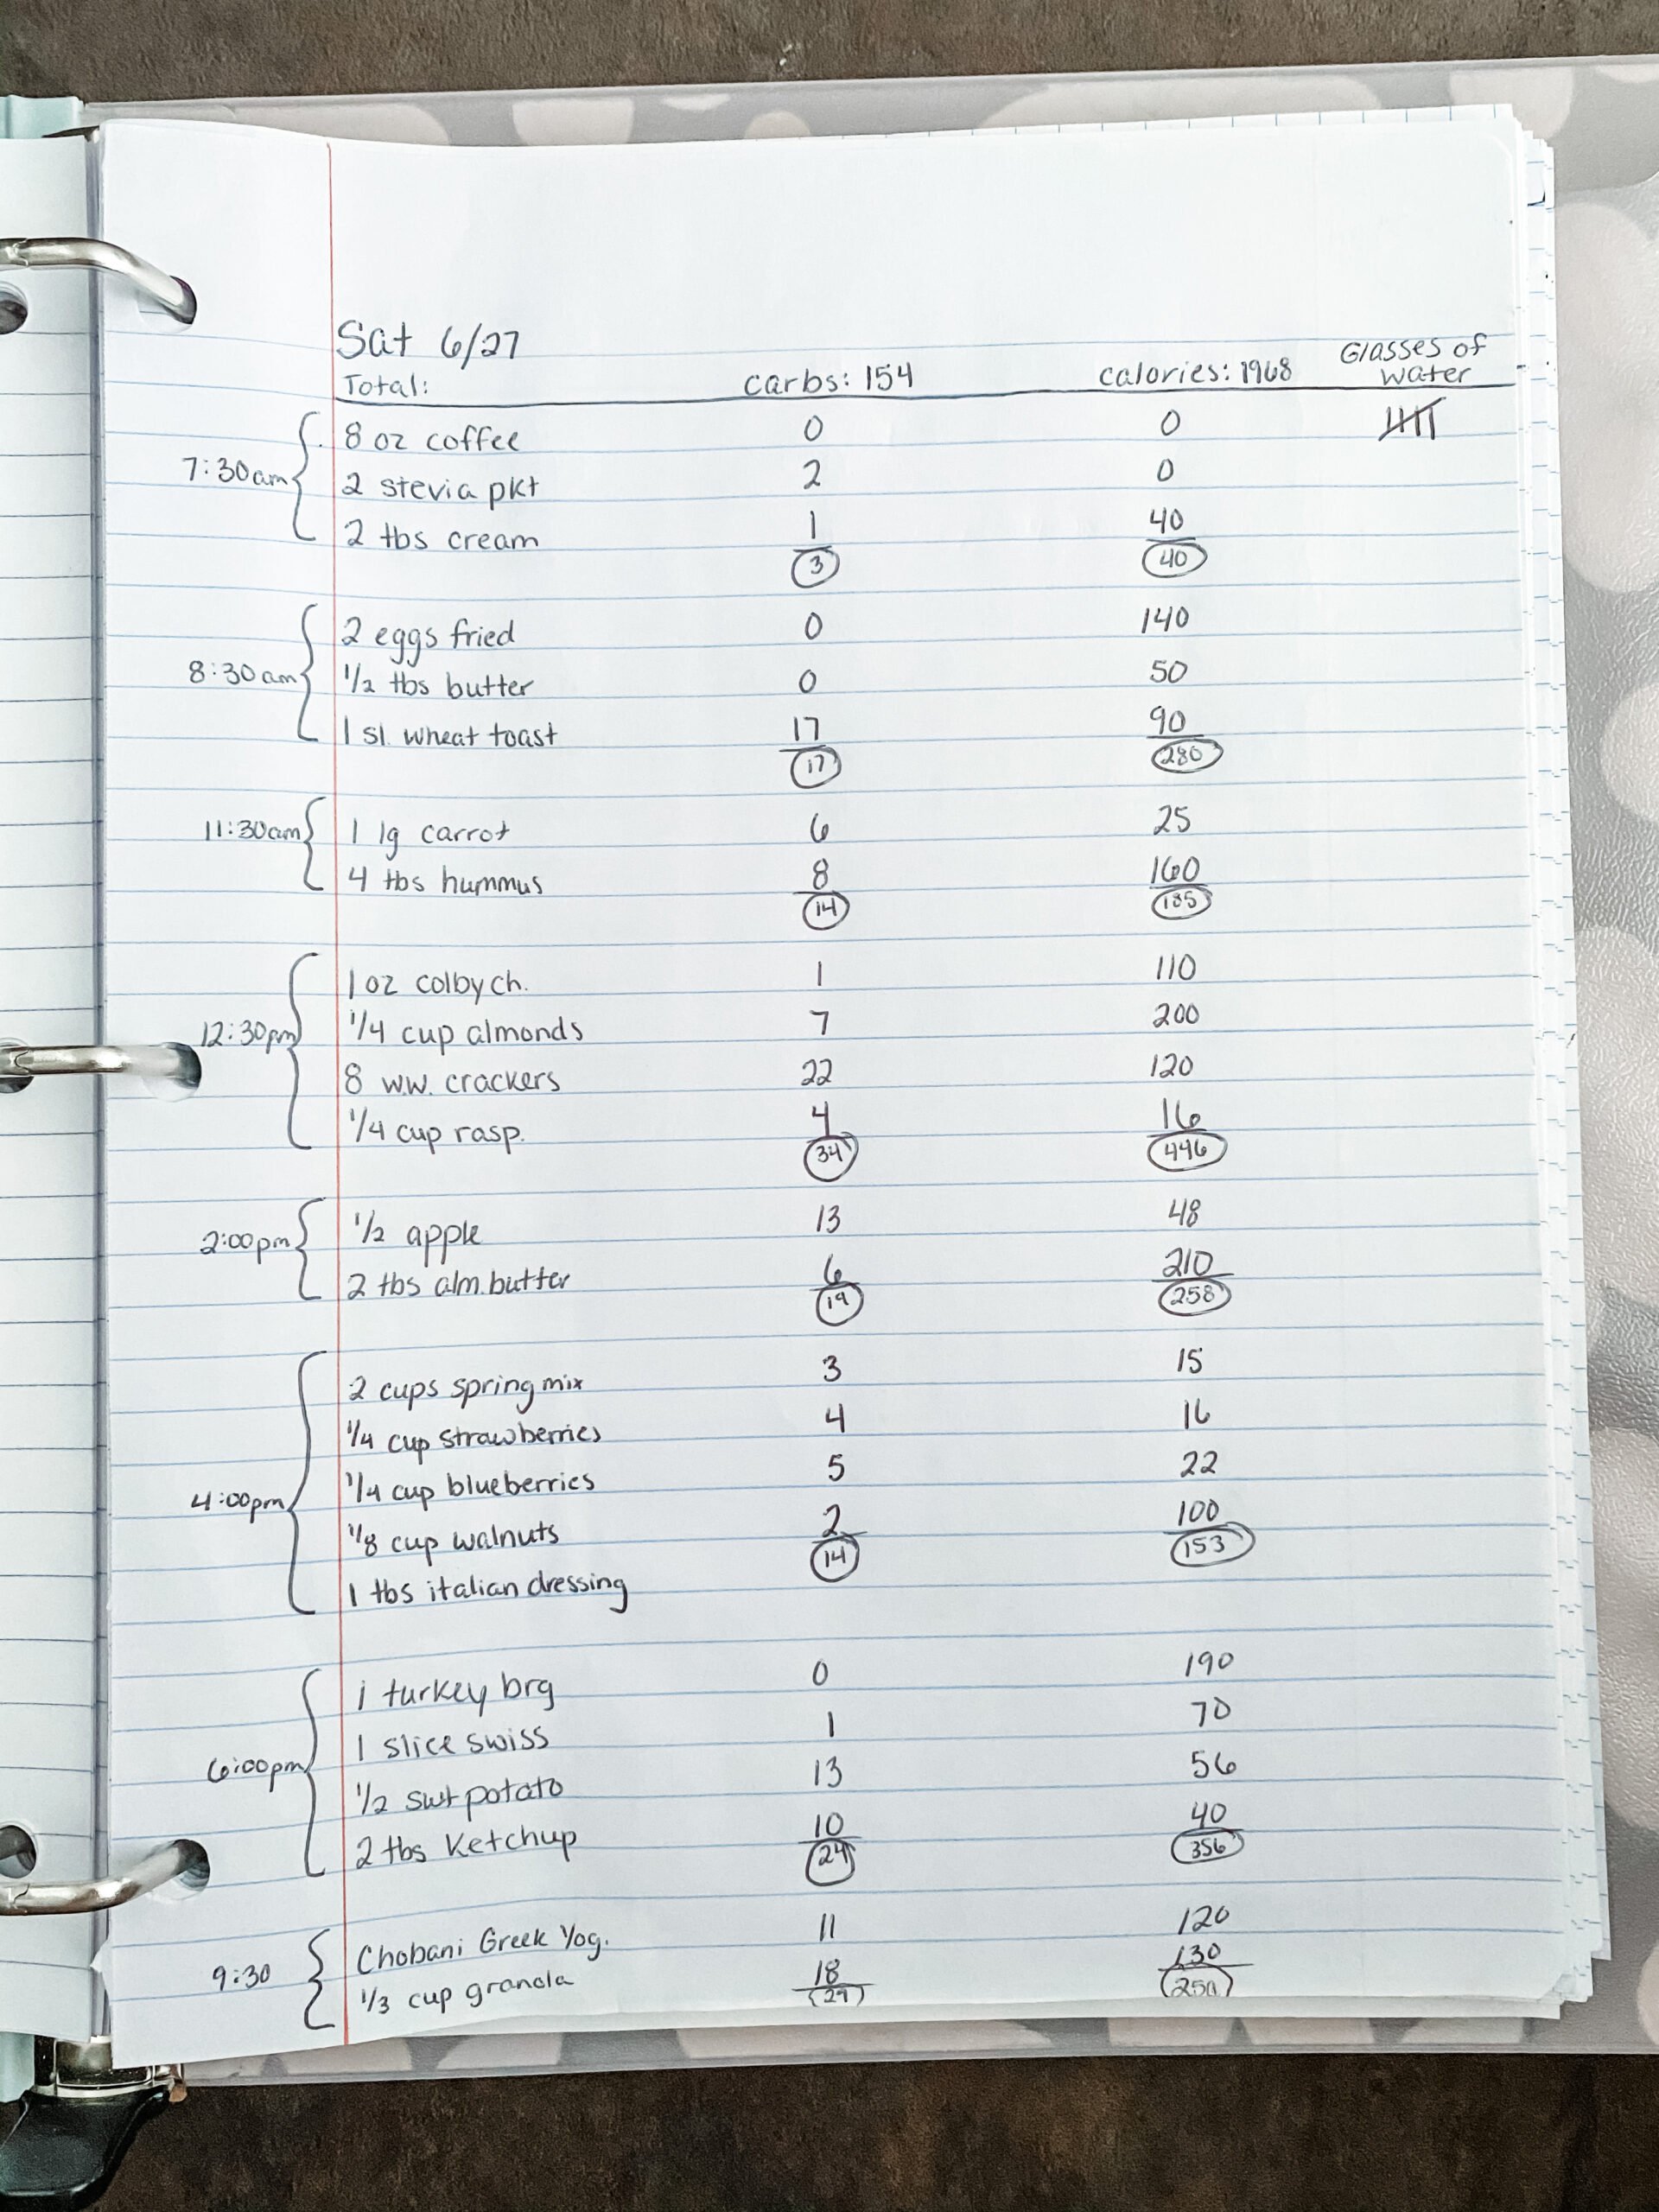 Sat 6/27
Total: carbs: 154 calories: 1968 Glasses of water
7:30am
8 oz coffee 0 0
2 stevia pkt 2 0
2 tbs cream 1 40
3 40
8:30am
2 eggs fried 0 140
1/2 tbs butter 0 50
1 sl. wheat toast 17 90
17 280
11:30am
1 lg carrot 6 25
4 tbs hummus 8 160
14 185
12:30pm
1 oz colby ch. 1 110
1/4 cup almonds 7 200
8 w.w. crackers 22 120
1/4 cup rasp. 4 16
34 446
2:00pm
1/2 apple 13 48
2 tbs alm. butter 6 210
19 258
4:00pm
2 cups spring mix 3 15
1/4 cup strawberries 4 16
1/4 cup blueberries 5 22
1/8 cup walnuts 2 100
14 153
1 tbs italian dressing
6:00pm
1 turkey brg 0 190
1 slice swiss 1 70
1/2 swt potato 13 56
2 tbs Ketchup 10 40
24 356
9:30
Chobani Greek Yog. 11 120
1/3 cup granola 18 130
29 250